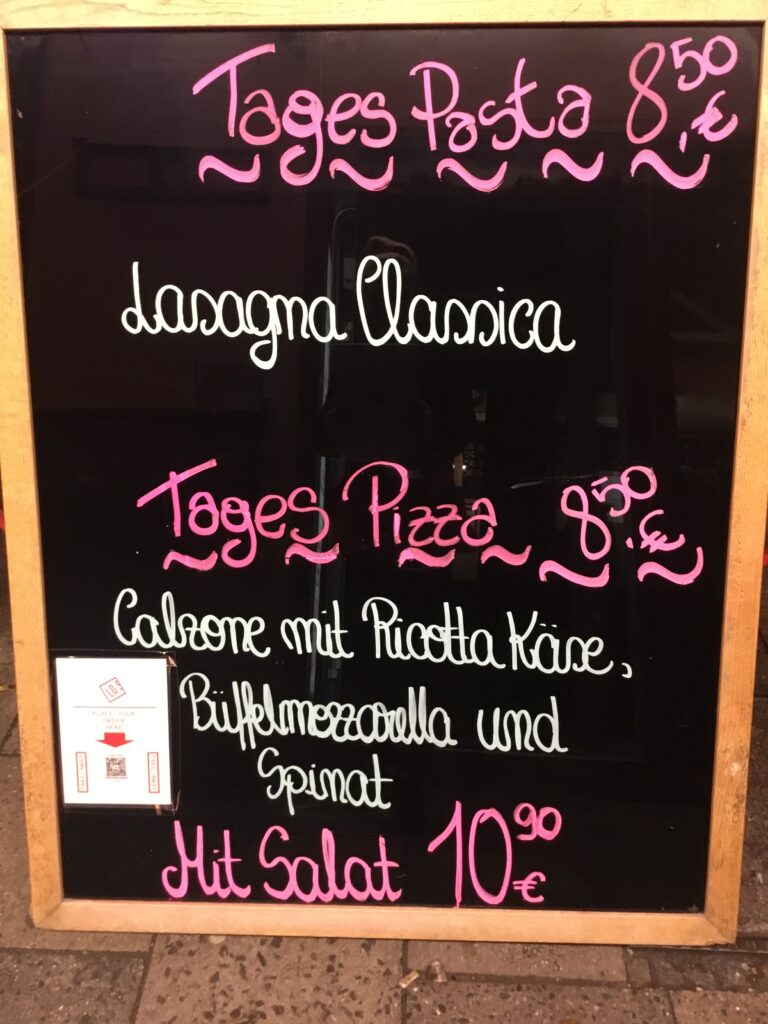 Tages Pasta 8,50 €
Lasagna Classica
Tages Pizza 8,50 €
Calzone mit Ricotta Käse,
Büffelmozzarella und
Spinat
Mit Salat 10 90 €
PLACE YOUR
ORDER
HERE